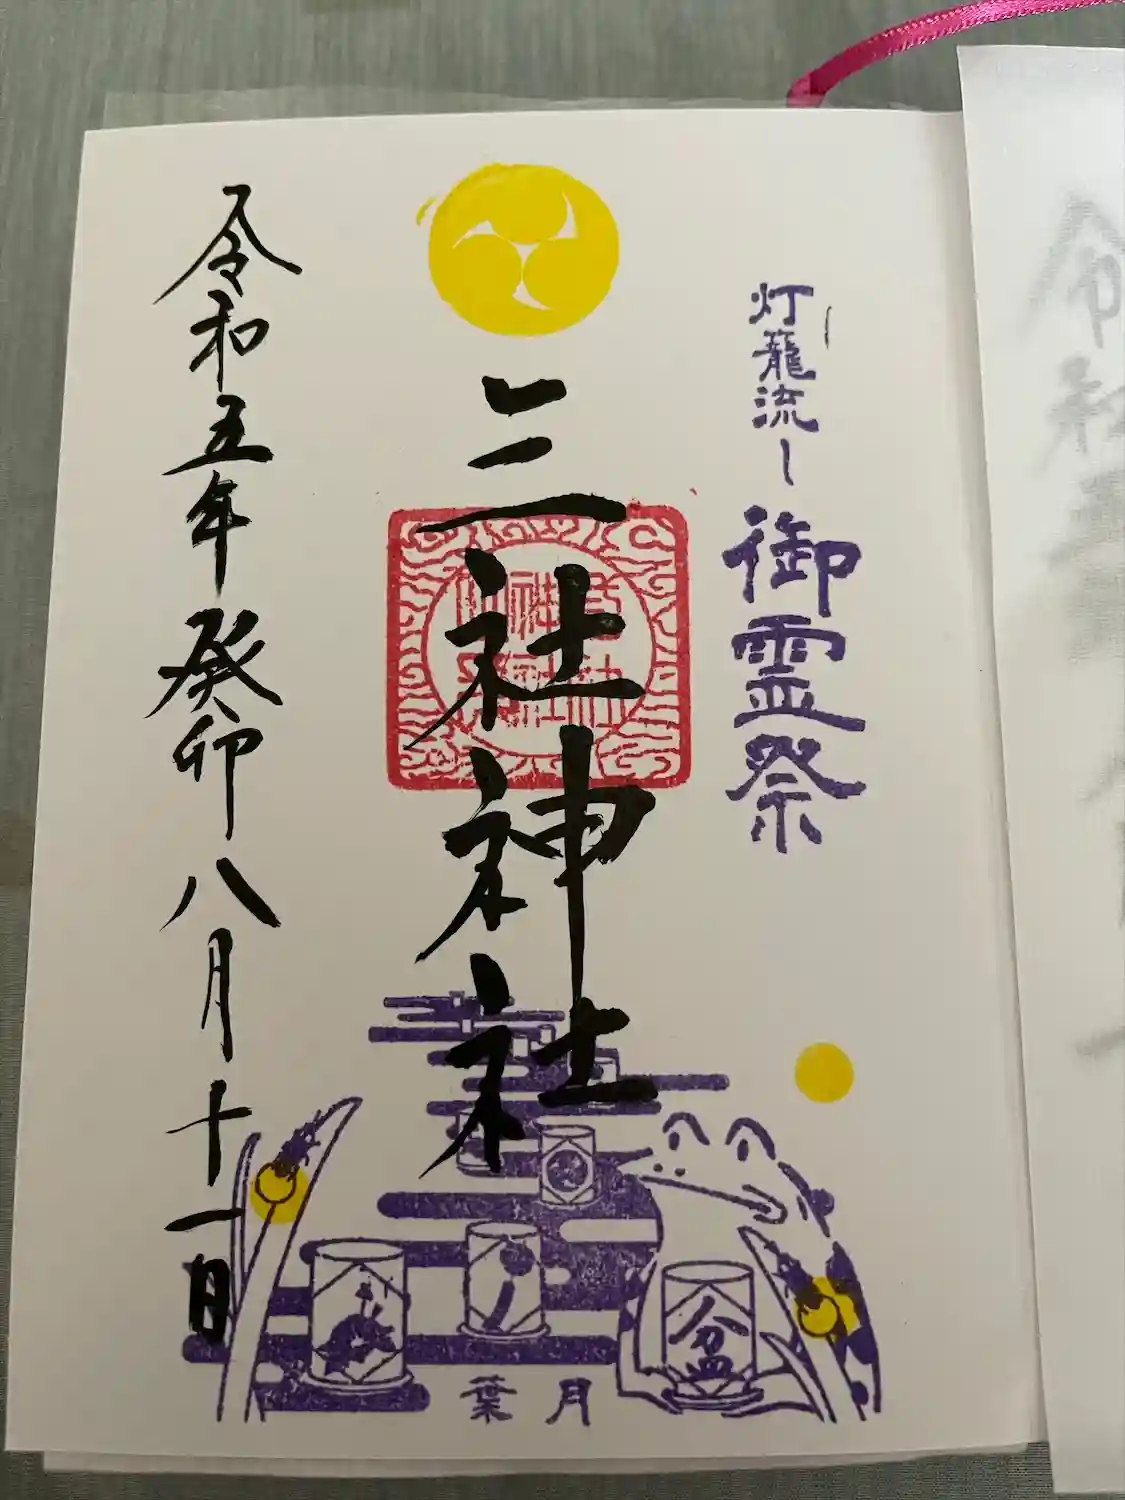 灯籠流し
御霊祭
三社神社
令和五年癸卯八月十一日
盆
葉月